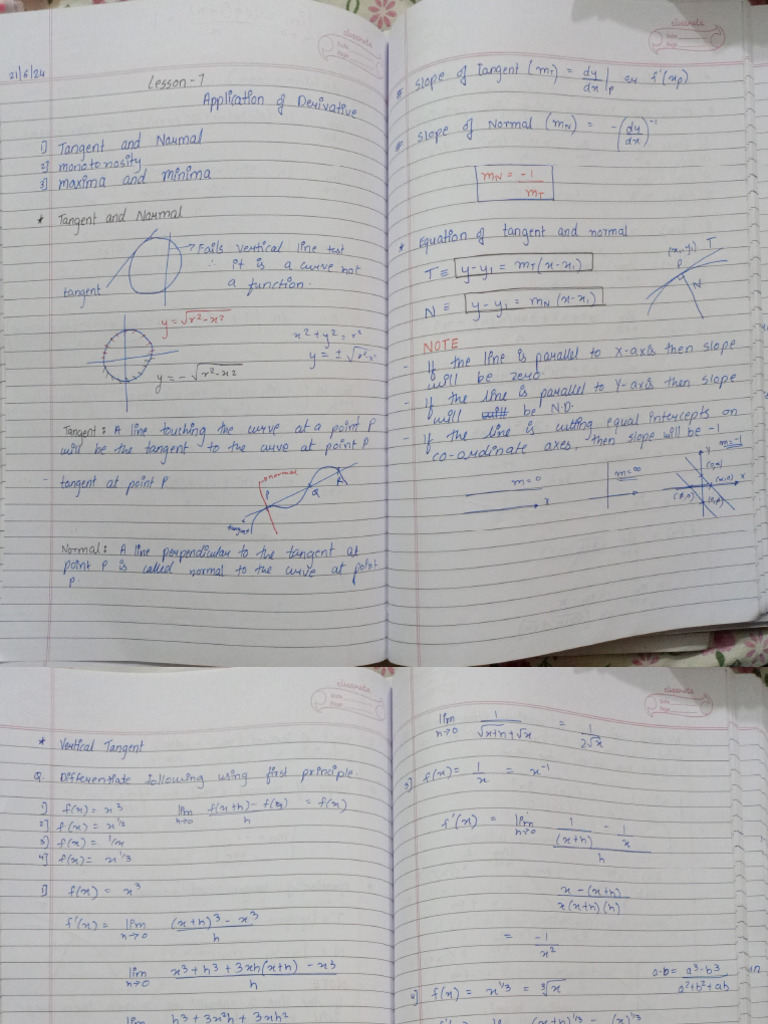 21/6/24
Lesson-7
Application of Derivative
1) Tangent and Normal
2) monotonosity
3) maxima and minima
* Tangent and Normal
→ Fails vertical line test
∴ it is a curve not
a function.
tangent
y = √(r²-x²)
x²+y²=r²
y = -√(r²-x²)
Tangent: A line touching the curve at a point P
will be the tangent to the curve at point P
- tangent at point P
normal
P
Q
R
tangent
Normal: A line perpendicular to the tangent at
point P is called normal to the curve at point
P.
classmate
Date
Page
* Slope of Tangent (mT) = dy/dx|P or f'(xp)
* Slope of Normal (mN) = -(dy/dx)⁻¹
mN = -1/mT
* Equation of tangent and normal
T ≡ y-y₁ = mT(x-x₁)
N ≡ y-y₁ = mN(x-x₁)
(x₁,y₁) T
P
N
NOTE
- If the line is parallel to X-axis then slope
will be zero.
- If the line is parallel to Y-axis then slope
will be N.D.
- If the line is cutting equal intercepts on
co-ordinate axes, then slope will be -1
m=0
x
m=∞
y
m=-1
x
classmate
Date
Page
* Vertical Tangent
Q. Differentiate following using first principle.
1) f(x) = x³
lim h→0 (f(x+h)-f(x))/h = f(x)
2) f(x) = x^1/2
3) f(x) = 1/x
4) f(x) = x^1/3
1) f(x) = x³
f'(x) = lim h→0 ((x+h)³-x³)/h
lim h→0 (x³+h³+3xh(x+h)-x³)/h
lim h³+3x²h+3xh²
classmate
Date
Page
lim h→0 1/(√(x+h)+√x) = 1/(2√x)
3) f(x) = 1/x = x⁻¹
f'(x) = lim h→0 (1/(x+h) - 1/x)/h
(x-(x+h))/(x(x+h)(h))
= -1/x²
4) f(x) = x^1/3 = ∛x
a-b = (a³-b³)/(a²+b²+ab)
(x+h)^1/3 - (x)^1/3